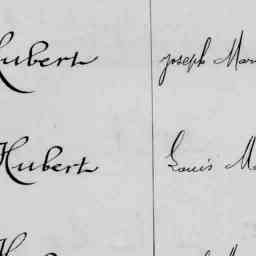 Hubert Joseph Mar
Hubert Louis Ma